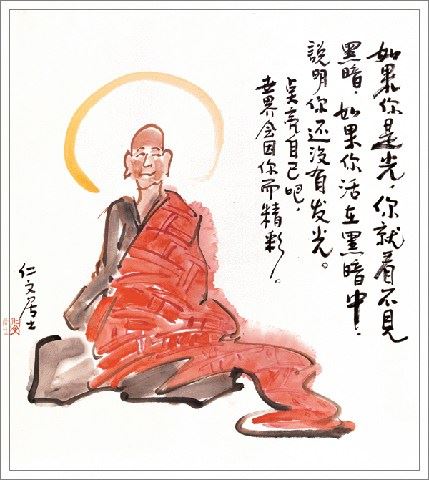 如果你是光，你就看不见
黑暗，如果你活在黑暗中，
说明你还没有发光。
点亮自己吧，
世界会因你而精彩。
仁文居士